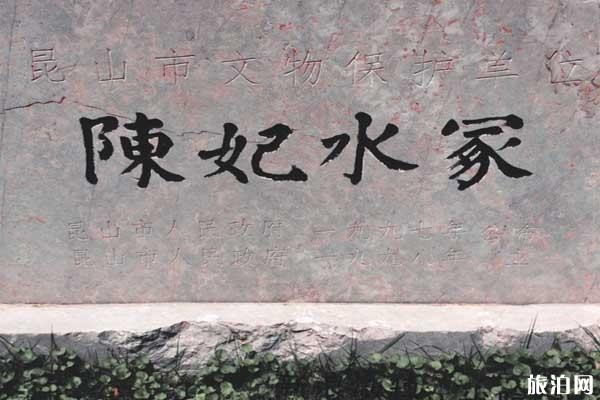 昆山市文物保护单位
陳妃水冢
昆山市人民政府 一九九七年公布
昆山市人民政府 一九九八年 立
旅泊网